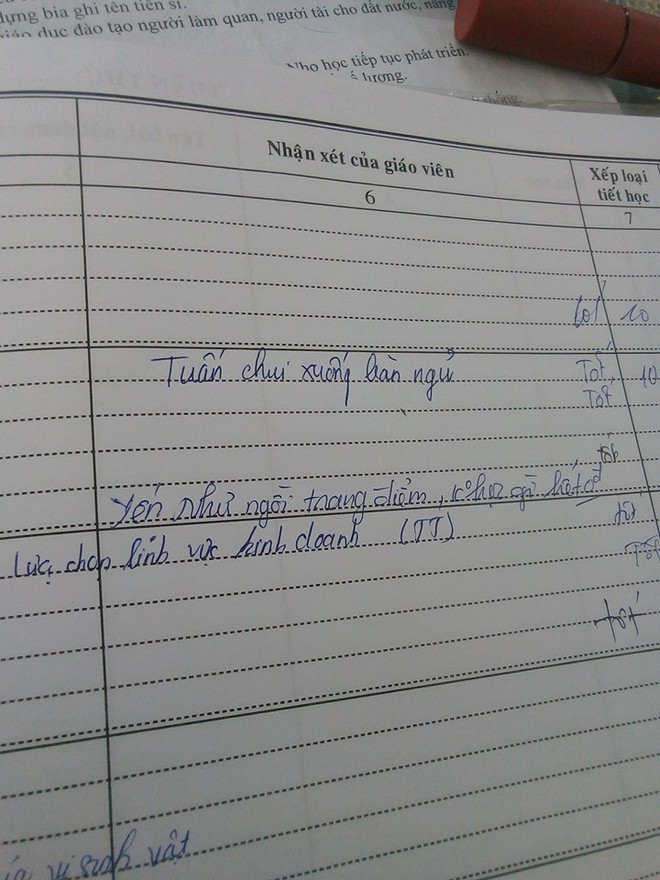 dựng bia ghi tên tiến sĩ.
giáo dục đào tạo người làm quan, người tài cho đất nước, nâng
Nho học tiếp tục phát triển.
lượng.
Nhận xét của giáo viên
Xếp loại
tiết học
6
7
Tốt 10
Tuấn chui xuống bàn ngủ Tốt 10
Tốt
tốt
Yến Như ngồi trang điểm, học gì hết
Lựa chọn lĩnh vực kinh doanh (TT) tốt
Tốt
tốt
vi sinh vật